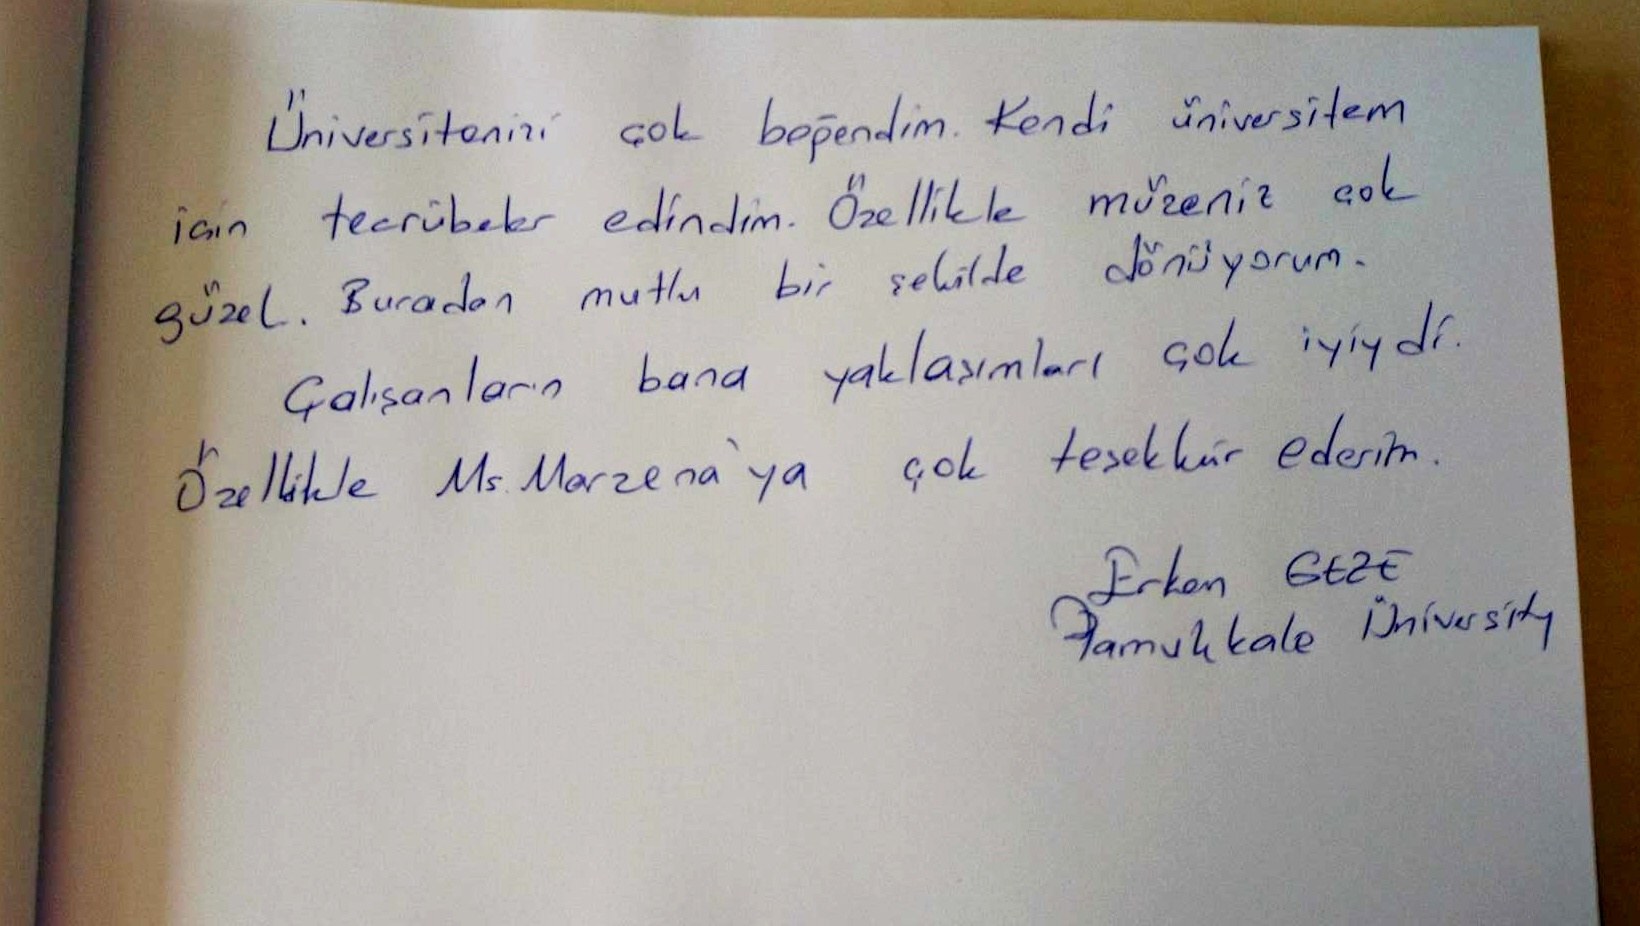 Üniversitenizi çok beğendim. Kendi üniversitem
için tecrübeler edindim. Özellikle müzeniz çok
güzel. Buradan mutlu bir şekilde dönüyorum.
Çalışanların bana yaklaşımları çok iyiydi.
Özellikle Ms. Marzena'ya çok teşekkür ederim.
Erkan GEZE
Pamukkale Üniversity